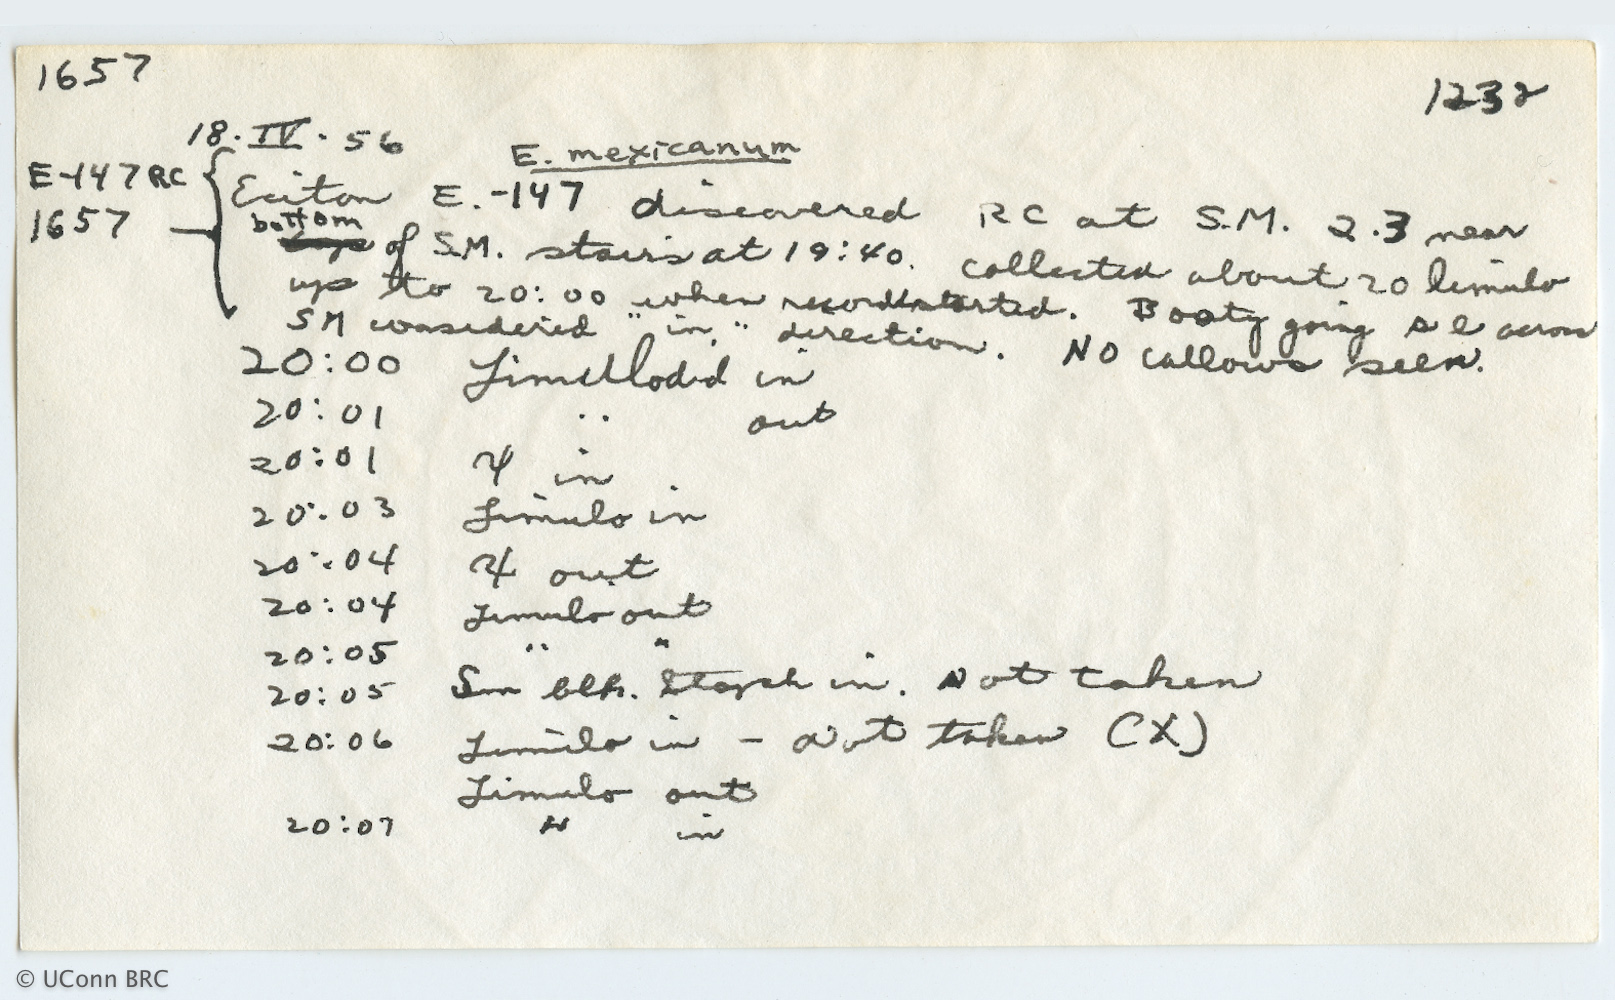 1657
1232
18.IV.56
E. mexicanum
E-147 RC
1657
Eciton E.-147 discovered RC at S.M. 2.3 near
bottom of S.M. stairs at 19:40. Collected about 20 limulo
up to 20:00 when record started. Booty going s e across
SM considered "in." direction. NO callows seen.
20:00 in
20:01 " out
20:01 Ψ in
20:03 Limulo in
20:04 Ψ out
20:04 Limulo out
20:05 " "
20:05 Sm blk. Staph in. Not taken
20:06 Limulo in - Not taken (X)
Limulo out
20:07 " in
© UConn BRC